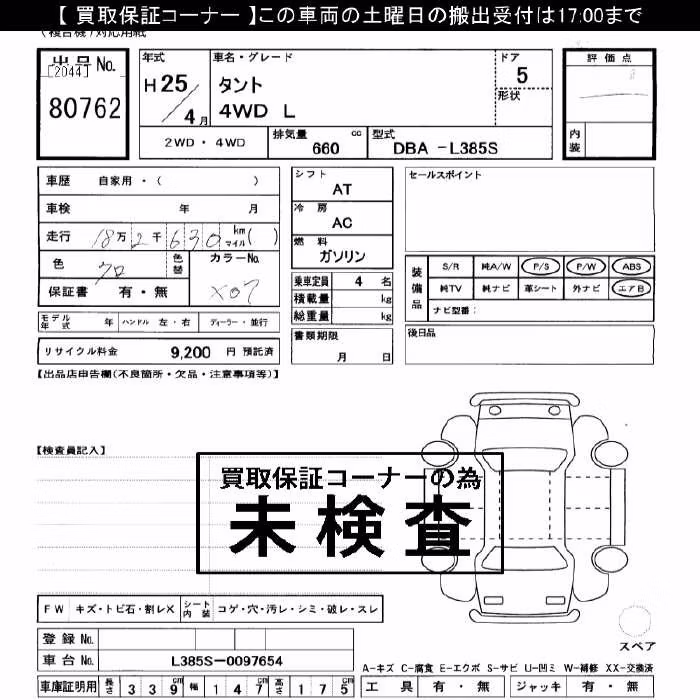 【 買取保証コーナー 】この車両の土曜日の搬出受付は17:00まで
(複合機)対応用紙
出品No.
[2044]
80762
年式
H 25 / 4 月
車名・グレード
タント
4WD L
ドア
5
形状
評価点
内装
2WD・4WD
排気量 cc
660
型式
DBA -L385S
車歴 自家用・( )
車検 年 月
走行 18万2千630 km マイル( )
色 クロ 色替
カラーNo.
X07
保証書 有・無
シフト
AT
冷房
AC
燃料
ガソリン
乗車定員 4 名
積載量 kg
総重量 kg
書類期限
月 日
セールスポイント
装備品
S/R 純A/W P/S P/W ABS
純TV 純ナビ 革シート 外ナビ エアB
ナビ型番:
後日品
モデル年式 年 ハンドル 左・右 ディーラー・並行
リサイクル料金 9,200 円 預託済
【出品店申告欄(不良箇所・欠品・注意事項等)】
【検査員記入】
買取保証コーナーの為
未検査
FW キズ・トビ石・割レX シート内装 コゲ・穴・汚レ・シミ・破レ・スレ
登録No.
車台No. L385S-0097654
スペア
A-キズ C-腐食 E-エクボ S-サビ U-凹ミ W-補修 XX-交換済
車庫証明用 長さ 339cm 幅 147cm 高さ 175cm
工具 有・無 ジャッキ 有・無